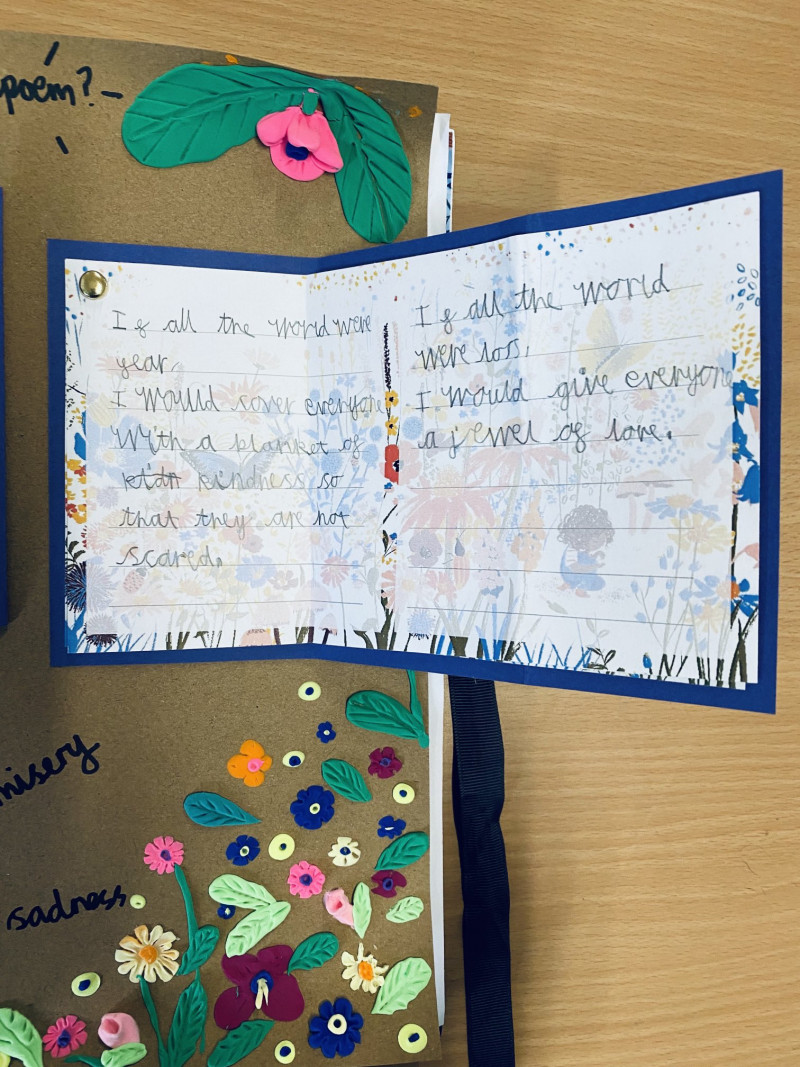 poem?
If all the world were
fear,
I would cover everyone
with a blanket of
kidn kindness so
that they are not
scared.
If all the world
were loss,
I would give everyone
a jewel of love.
misery
sadness